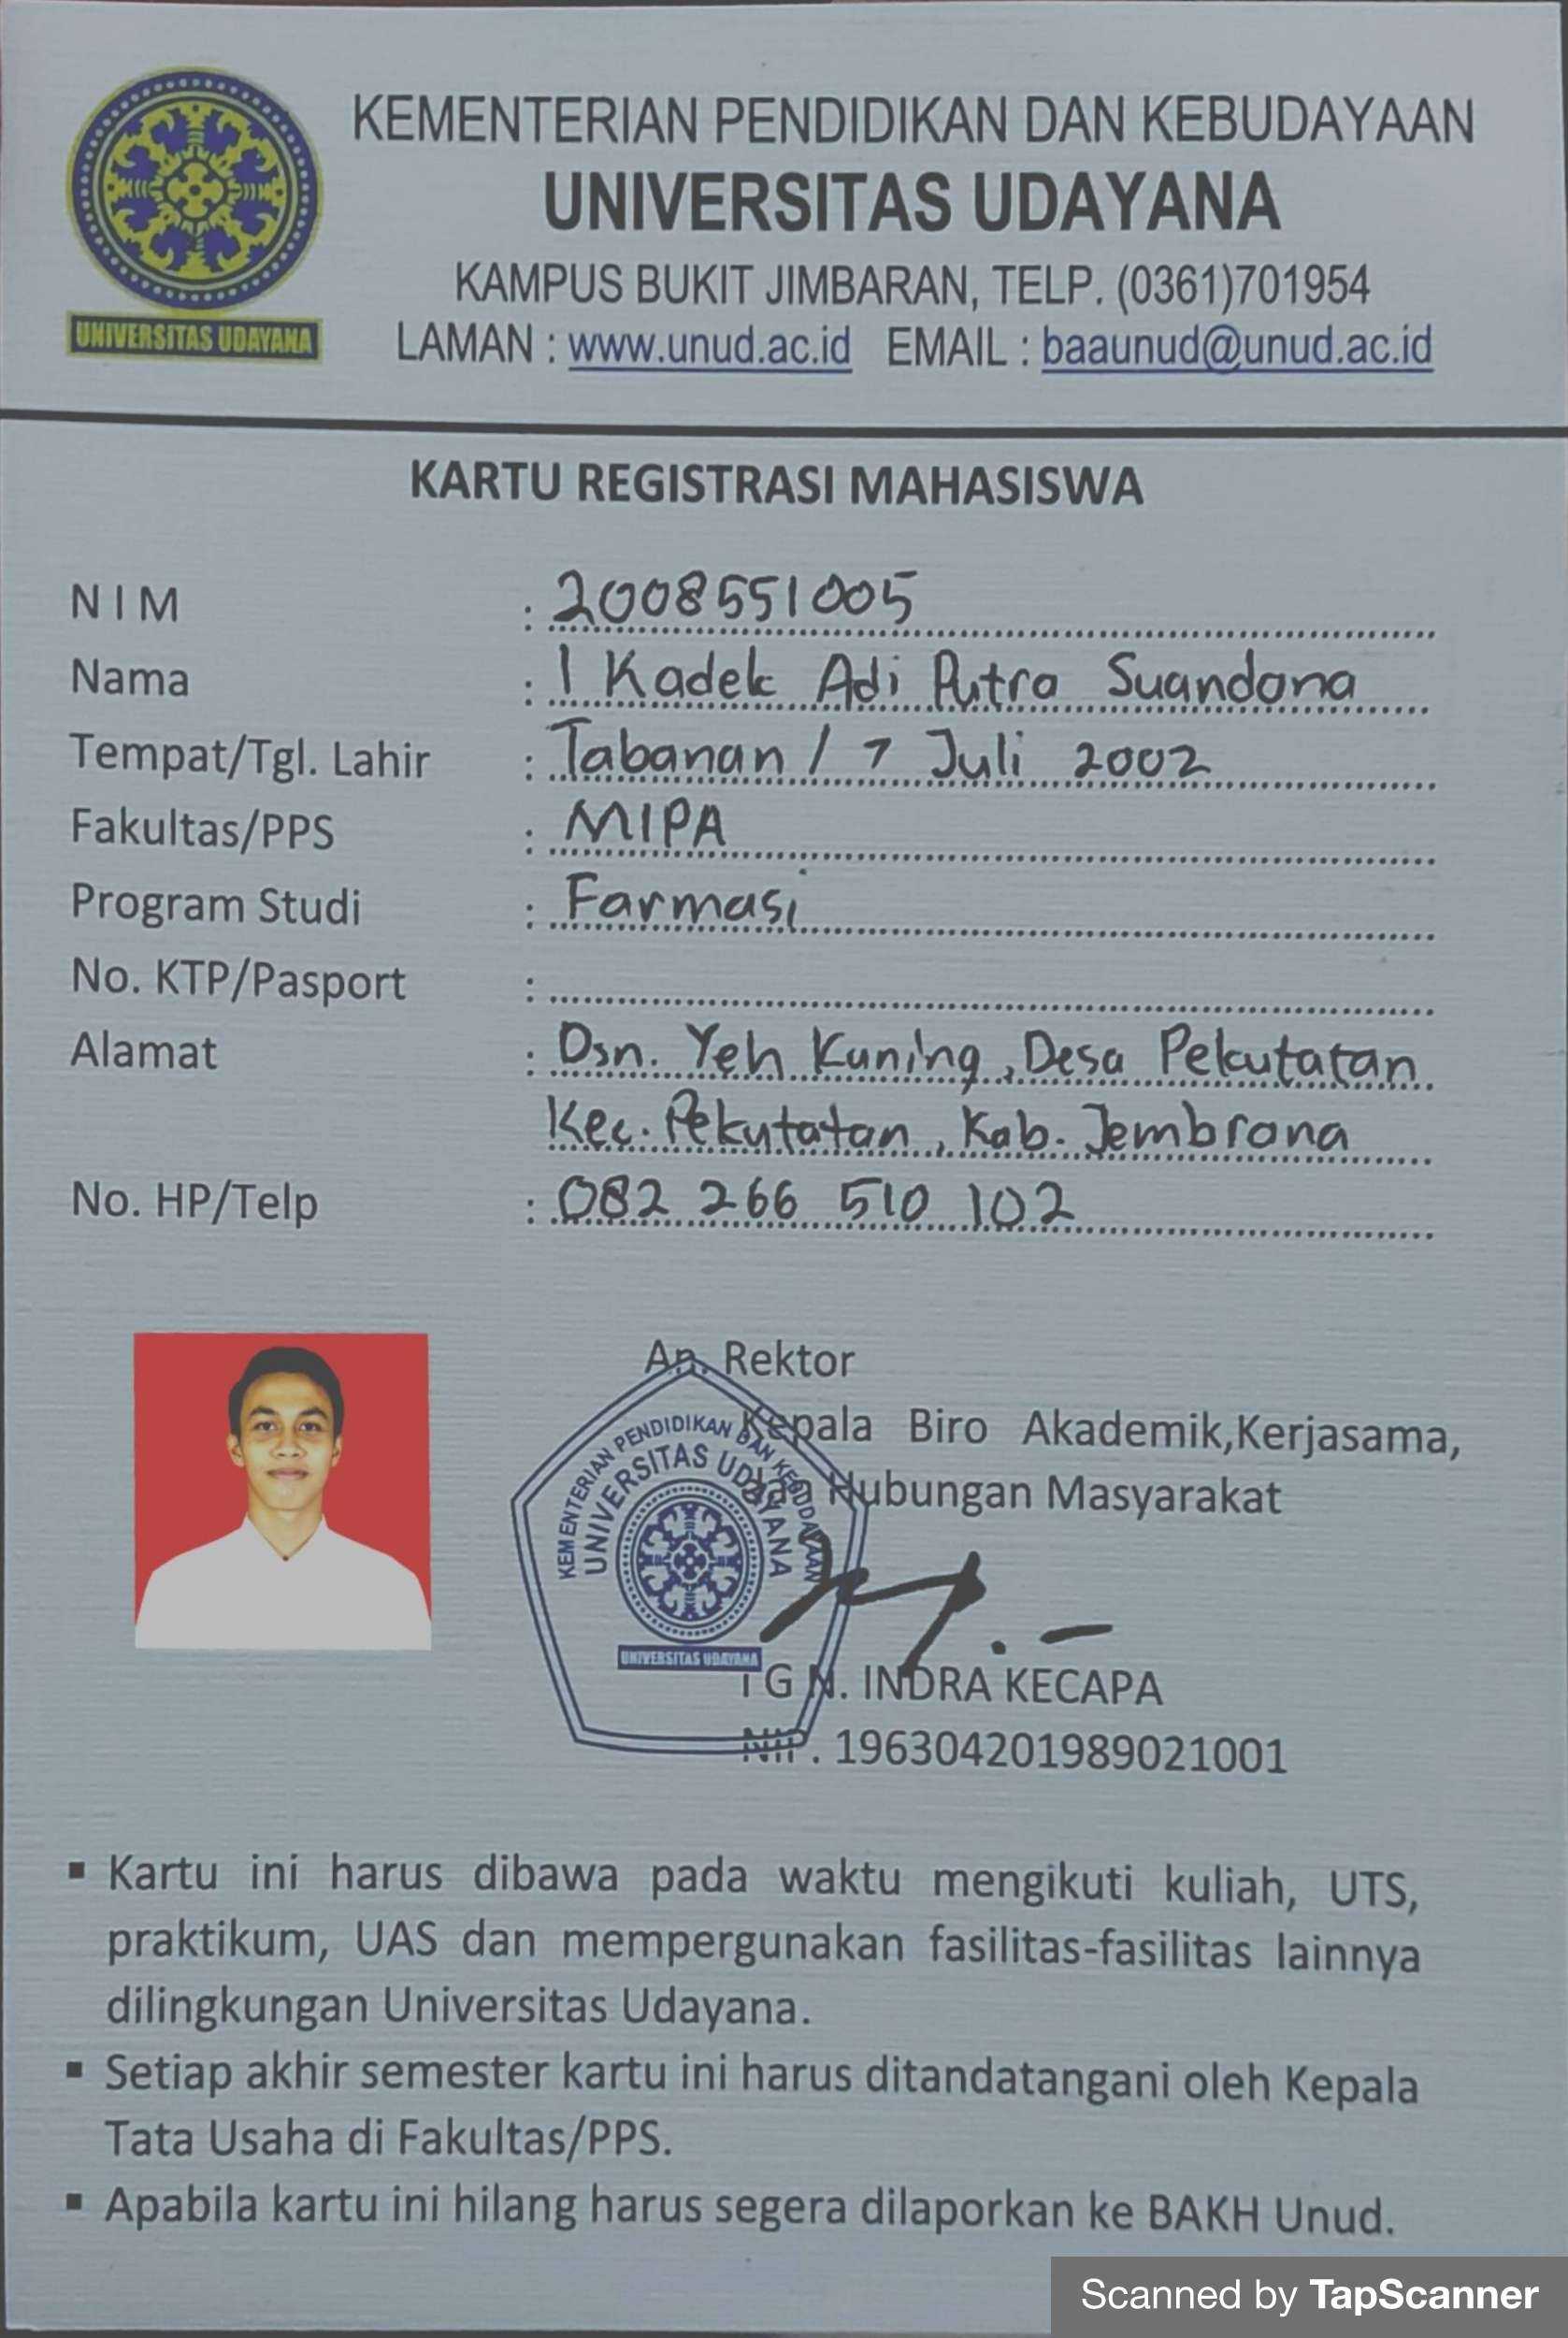 KEMENTERIAN PENDIDIKAN DAN KEBUDAYAAN
UNIVERSITAS UDAYANA
KAMPUS BUKIT JIMBARAN, TELP. (0361)701954
LAMAN : www.unud.ac.id EMAIL : baaunud@unud.ac.id
UNIVERSITAS UDAYANA
KARTU REGISTRASI MAHASISWA
NIM : 2008551005
Nama : I Kadek Adi Putra Suandana
Tempat/Tgl. Lahir : Tabanan / 7 Juli 2002
Fakultas/PPS : MIPA
Program Studi : Farmasi
No. KTP/Pasport :
Alamat : Dsn. Yeh Kuning, Desa Pekutatan
Kec. Pekutatan, Kab. Jembrana
No. HP/Telp : 082 266 510 102
An. Rektor
Kepala Biro Akademik,Kerjasama,
dan Hubungan Masyarakat
KEMENTERIAN PENDIDIKAN DAN KEBUDAYAAN
UNIVERSITAS UDAYANA
UNIVERSITAS UDAYANA
I G N. INDRA KECAPA
NIP. 196304201989021001
▪ Kartu ini harus dibawa pada waktu mengikuti kuliah, UTS,
praktikum, UAS dan mempergunakan fasilitas-fasilitas lainnya
dilingkungan Universitas Udayana.
▪ Setiap akhir semester kartu ini harus ditandatangani oleh Kepala
Tata Usaha di Fakultas/PPS.
▪ Apabila kartu ini hilang harus segera dilaporkan ke BAKH Unud.
Scanned by TapScanner